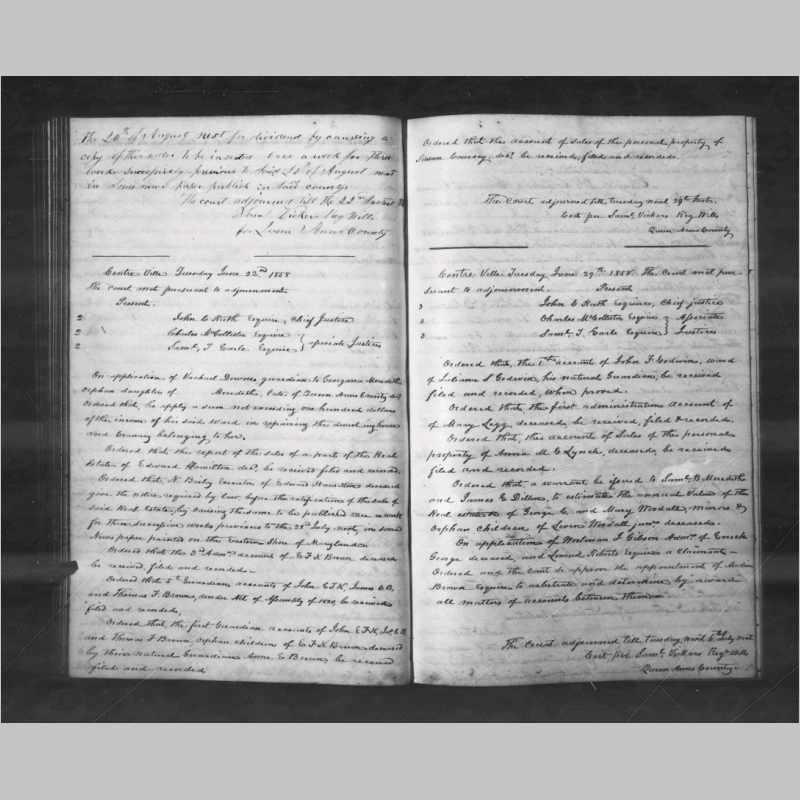 The 20th of August next for dividend by causing a
copy of this order to be inserted once a week for three
weeks Successively previous to said 20th of August next
in some news paper publish in said county
The court adjourned till the 22nd
Saml Vickers Reg Wills
for Queen Anns County
Centre Ville Tuesday June 22nd 1858
The court met pursuant to adjournment
Present
2 John C Ruth Esquire, Chief Justice
2 Charles McCollister Esquire
2 Saml T. Earle Esquire } Justices
On application of Vachael Downes guardian to Georgana Meredith
Orphan daughter of Meredith, late of Queen Anns County decd
Ordered that, he apply a sum not exceeding one hundred dollars
of the income of his said Ward in repairing the dwelling house
and Granary belonging to her.
Ordered that the report of the sales of a part of the Real
Estate of Edward Hamilton decd, be received filed and record.
Ordered that, N. Executor of Edward Hamilton deceased
give the notice required by law before the ratification of the sale of
said Real Estate, by causing the same to be published once a week
for three successive weeks previous to the 25th July next, in some
News paper printed on the Eastern Shore of Maryland
Ordered that the 3d Admn account of E F K Brown deceased
be received, filed and recorded
Ordered that 5th Guardian accounts of John E F K, James C B,
and Thomas F. Browns, under Act of Assembly of 1820, be received
filed and recorded,
Ordered that the first Guardian accounts of John E F K, Jas C B
and Thomas F Brown orphan children of E F K Brown deceased
by their natural Guardian Anne E Brown, be received
filed and recorded
Ordered that the account of sales of the personal property of
Emory, decd be received, filed and recorded.
The Court adjourned till tuesday next 29th Instr.
Test per Saml Vickers Reg Wills
Queen Anns County
Centre Ville Tuesday June 29th 1858. The Court met pur-
suant to adjournment. Present
3 John C Ruth Esquire, Chief justice
2 Charles McCollister Esquire } Associates
3 Saml. T. Earle Esquire } Justices
Ordered that, the 1st account of John F. Godwin, ward
of S Godwin, his natural Guardian, be received
filed and recorded, when proved.
Ordered that the first administration account of
of Mary Legg, deceased, be received, filed & recorded.
Ordered that, the accounts of Sales of the personal
property of Anna M. E Lynch, deceased, be received
filed and recorded.
Ordered that a warrant be issued to Saml B. Meredith
and James E Dillen, to estimate the annual Value of the
Real estate of George E. and Mary Woodall, minors &
Orphan Children of Levin Woodall junr deceased.
On application of Woolman J Gibson Admr. of Enoch
George deceased, and Edward Roberts Esquires a claimant —
Ordered and the Court do approve the appointment of Madison
Brown Esquire to arbitrate and determine by award
all matters of accounts between them
The Court adjourned till tuesday, next 6th July next
Test per Saml Vickers Regr Wills
Queen Anns County